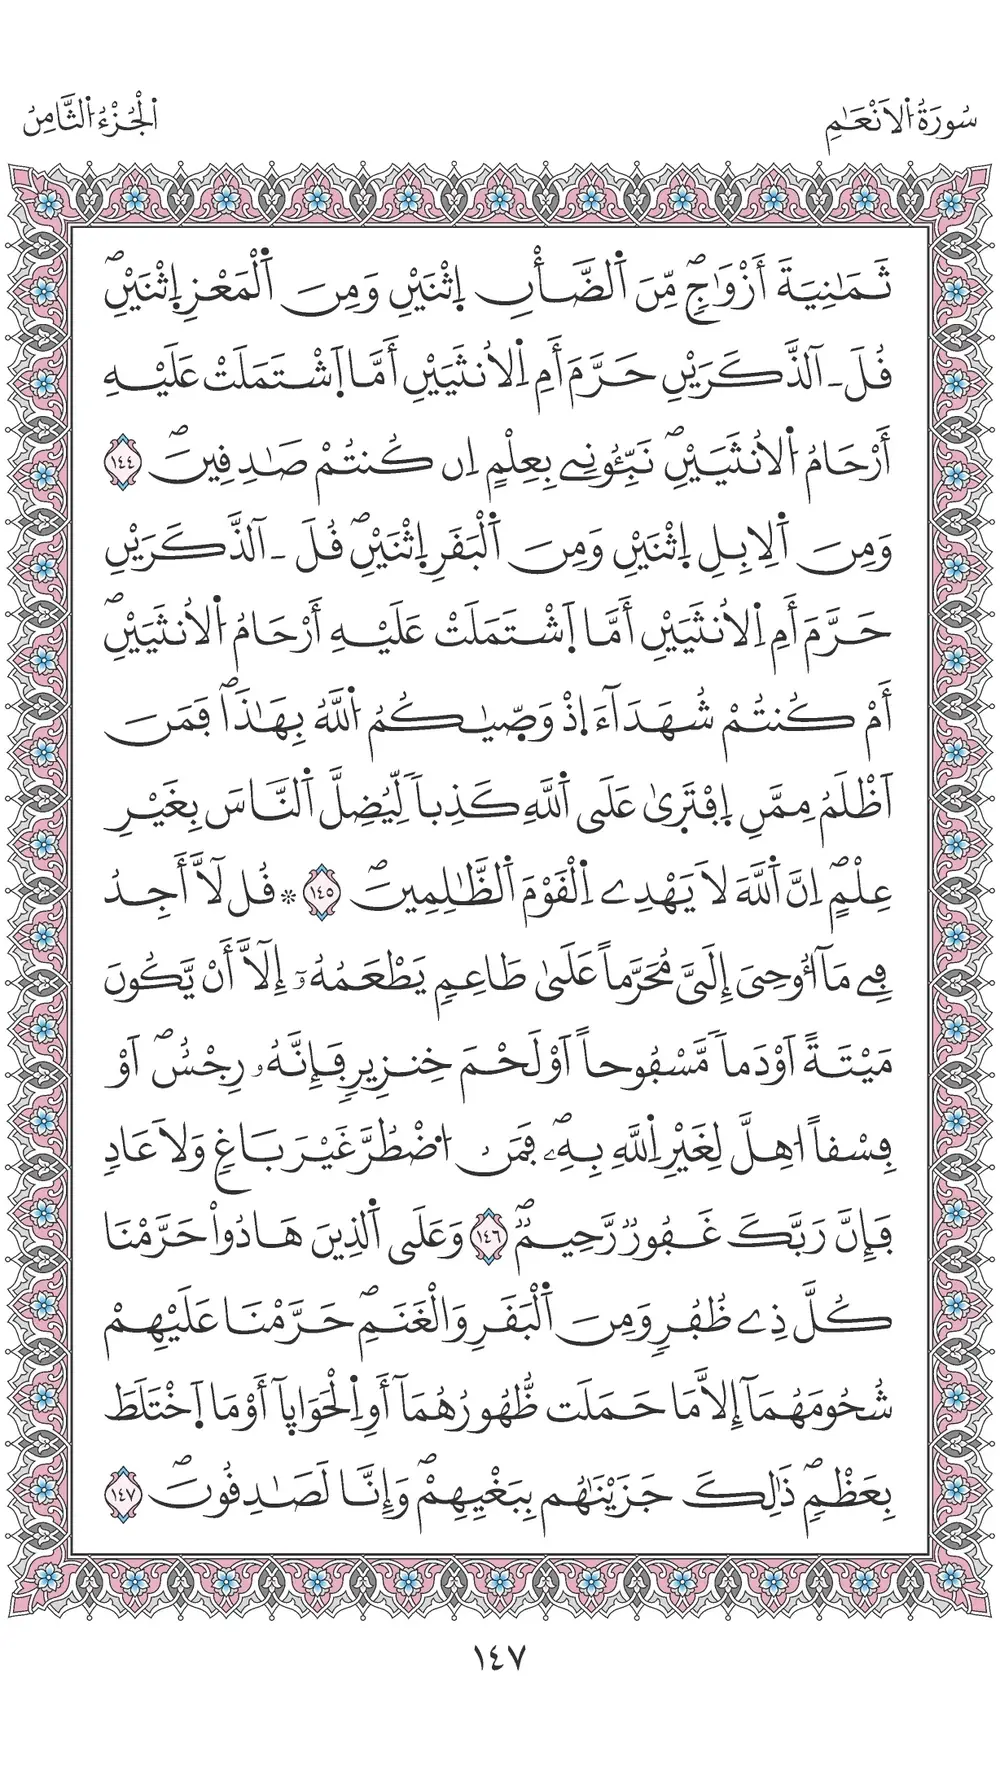 سُورَةُ اُ۬لَانْعَٰمِ
اُ۬لْجُزْءُ اُ۬لثَّامِنُ
ثَمَٰنِيَةَ أَزْوَٰجٖۖ مِّنَ اَ۬لضَّأْنِ اِ۪ثْنَيْنِ وَمِنَ اَ۬لْمَعْزِ اِ۪ثْنَيْنِۖ
قُلَ ـ آلذَّكَرَيْنِ حَرَّمَ أَمِ اِ۬لُانثَيَيْنِ أَمَّا اَ۪شْتَمَلَتْ عَلَيْهِ
أَرْحَامُ اُ۬لُانثَيَيْنِۖ نَبِّـُٔونِے بِعِلْمٍ اِن كُنتُمْ صَٰدِقِينَۖ ١٤٤
وَمِنَ اَ۬لِابِلِ اِ۪ثْنَيْنِ وَمِنَ اَ۬لْبَقَرِ اِ۪ثْنَيْنِۖ قُلَ ـ آلذَّكَرَيْنِ
حَرَّمَ أَمِ اِ۬لُانثَيَيْنِ أَمَّا اَ۪شْتَمَلَتْ عَلَيْهِ أَرْحَامُ اُ۬لُانثَيَيْنِۖ
أَمْ كُنتُمْ شُهَدَآءَ اِذْ وَصّ۪يٰكُمُ اُ۬للَّهُ بِهَٰذَاۖ فَمَنَ
اَظْلَمُ مِمَّنِ اِ۪فْتَر۪يٰ عَلَى اَ۬للَّهِ كَذِباٗ لِّيُضِلَّ اَ۬لنَّاسَ بِغَيْرِ
عِلْمٍۖ اِنَّ اَ۬للَّهَ لَا يَهْدِے اِ۬لْقَوْمَ اَ۬لظَّٰلِمِينَۖ ١٤٥ ۞ قُل لَّآ أَجِدُ
فِے مَآ أُوحِىَ إِلَىَّ مُحَرَّماً عَلَىٰ طَاعِمٖ يَطْعَمُهُۥٓ إِلَّآ أَنْ يَّكُونَ
مَيْتَةً اَوْ دَماٗ مَّسْفُوحاً اَوْ لَحْمَ خِنزِيرٖ فَإِنَّهُۥ رِجْسٌۖ اَوْ
فِسْقاً ا۟هِلَّ لِغَيْرِ اِ۬للَّهِ بِهِۦۖ فَمَنُ اُ۟ضْطُرَّ غَيْرَ بَاغٖ وَلَا عَادٖ
فَإِنَّ رَبَّكَ غَفُورٞ رَّحِيمٞۖ ١٤٦ وَعَلَى اَ۬لذِينَ هَادُواْ حَرَّمْنَا
كُلَّ ذِے ظُفُرٖ وَمِنَ اَ۬لْبَقَرِ وَالْغَنَمِۖ حَرَّمْنَا عَلَيْهِمْ
شُحُومَهُمَآ إِلَّا مَا حَمَلَت ظُّهُورُهُمَآ أَوِ اِ۬لْحَوَايَآ أَوْ مَا اَ۪خْتَلَطَ
بِعَظْمٖۖ ذَٰلِكَ جَزَيْنَٰهُم بِبَغْيِهِمْۖ وَإِنَّا لَصَٰدِقُونَۖ ١٤٧
١٤٧